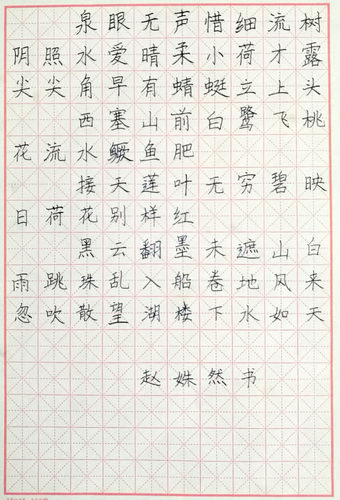 泉眼无声惜细流树
阴照水爱晴柔小荷才露
尖尖角早有蜻蜓立上头
西塞山前白鹭飞桃
花流水鳜鱼肥
接天莲叶无穷碧映
日荷花别样红
黑云翻墨未遮山白
雨跳珠乱入船卷地风来
忽吹散望湖楼下水如天
赵姝然书